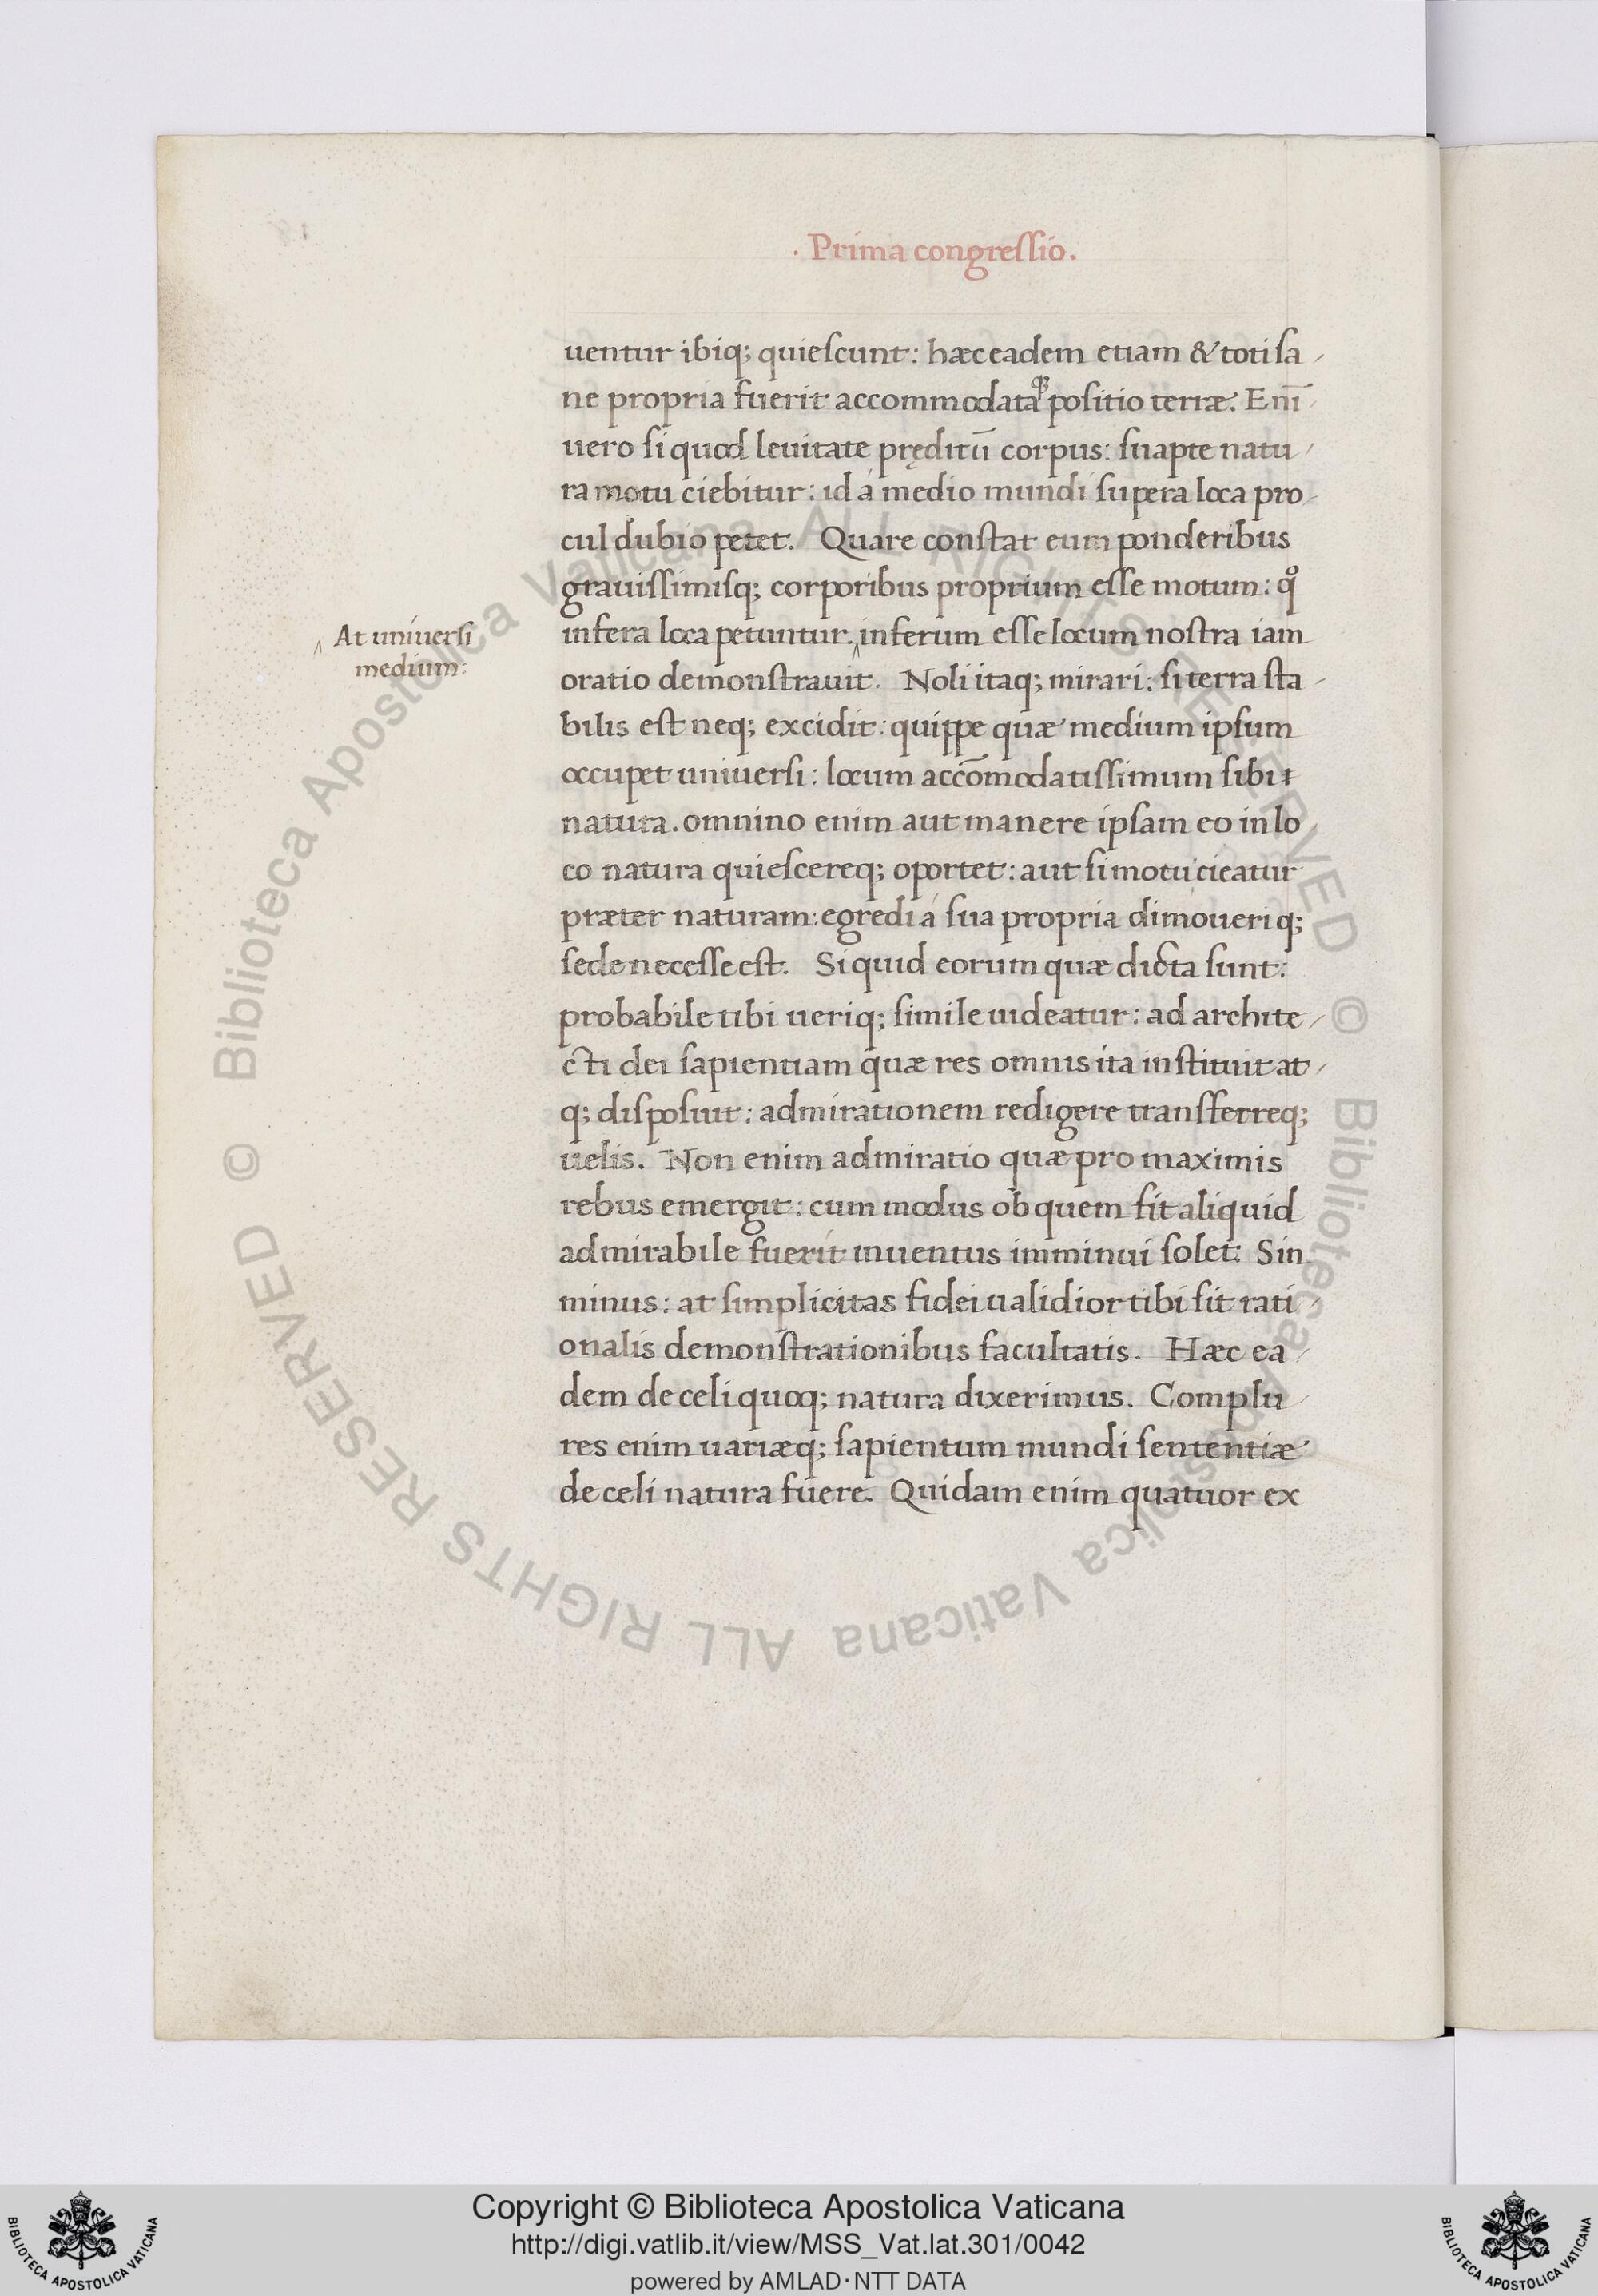 · Prima congressio.
uentur ibiq; quiescunt: hæc eadem etiam & toti sa-
ne propria fuerit accommodataq; positio terræ. Eni͞-
uero si quod leuitate pręditū corpus: suapte natu-
ra motu ciebitur: id á medio mundi supera loca pro-
cul dubio petet. Quare constat eum ponderibus
grauissimisq; corporibus proprium esse motum: qͦ
infera loca petuntur.^inferum esse locum nostra iam
At uniuersi
medium:
oratio demonstrauit. Noli itaq; mirari: si terra sta-
bilis est neq; excidit: quippe quæ medium ipsum
occupet uniuersi: locum accōmodatissimum sibi
natura. omnino enim aut manere ipsam eo in lo-
co natura quiescereq; oportet: aut si motu cieatur
præter naturam: egredi á sua propria dimoueriq;
sede necesse est. Si quid eorum quæ dicta sunt:
probabile tibi ueriq; simile uideatur: ad archite-
cti dei sapientiam quæ res omnis ita instituit at-
q; disposuit: admirationem redigere transferreq;
uelis. Non enim admiratio quæ pro maximis
rebus emergit: cum modus ob quem fit aliquid
admirabile fuerit inuentus imminui solet. Sin
minus: at simplicitas fidei ualidior tibi sit rati-
onalis demonstrationibus facultatis. Hæc ea-
dem de celi quoq; natura dixerimus. Complu-
res enim uariæq; sapientum mundi sententiæ
de celi natura fuere. Quidam enim quatuor ex
© Biblioteca Apostolica Vaticana ALL RIGHTS RESERVED
© Biblioteca Apostolica Vaticana ALL RIGHTS RESERVED
Copyright © Biblioteca Apostolica Vaticana
http://digi.vatlib.it/view/MSS_Vat.lat.301/0042
powered by AMLAD·NTT DATA
BIBLIOTECA APOSTOLICA VATICANA
BIBLIOTECA APOSTOLICA VATICANA